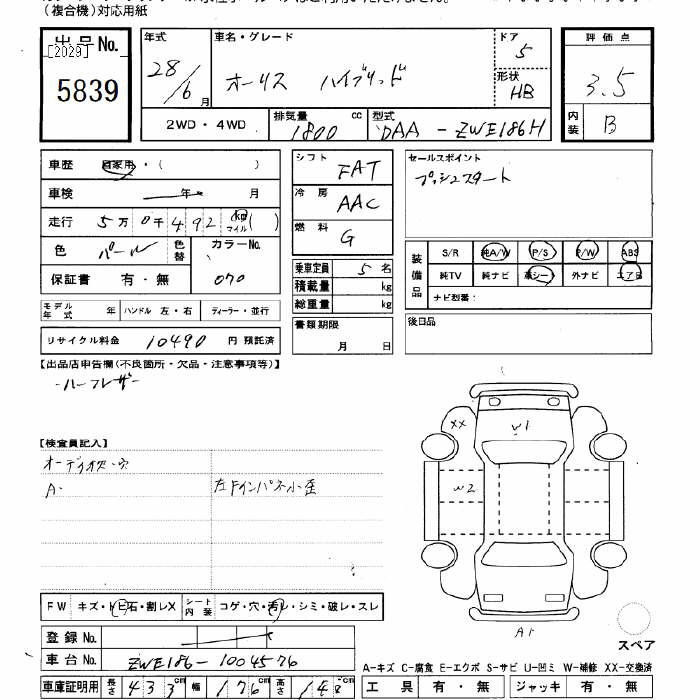 (複合機)対応用紙
出品No.
[2029]
5839
年式
28/6月
車名・グレード
オーリス ハイブリッド
ドア
5
形状
HB
2WD・4WD
排気量
1800 cc
型式
DAA-ZWE186H
評価点
3.5
内装
B
車歴 自家用・( )
車検 年 月
走行 5万0千492 km マイル( )
色 パール 色替 カラーNo.
070
保証書 有・無
モデル年式 年 ハンドル 左・右 ディーラー・並行
リサイクル料金 10490 円 預託済
シフト FAT
冷房 AAC
燃料 G
乗車定員 5 名
積載量 kg
総重量 kg
書類期限
月 日
セールスポイント
プッシュスタート
装備品
S/R 純A/W P/S P/W ABS
純TV 純ナビ 革シート 外ナビ エアB
ナビ型番:
後日品
【出品店申告欄(不良箇所・欠品・注意事項等)】
ハーフレザー
【検査員記入】
オーディオ
A・
左Fインパネ小歪
XX
W1
W2
A1
スペア
FW キズ・トビ石・割レX
シート内装 コゲ・穴・汚レ・シミ・破レ・スレ
登録No.
車台No. ZWE186-1004576
車庫証明用 長さ 433cm 幅 176cm 高さ 148cm
A-キズ C-腐食 E-エクボ S-サビ U-凹ミ W-補修 XX-交換済
工具 有・無 ジャッキ 有・無